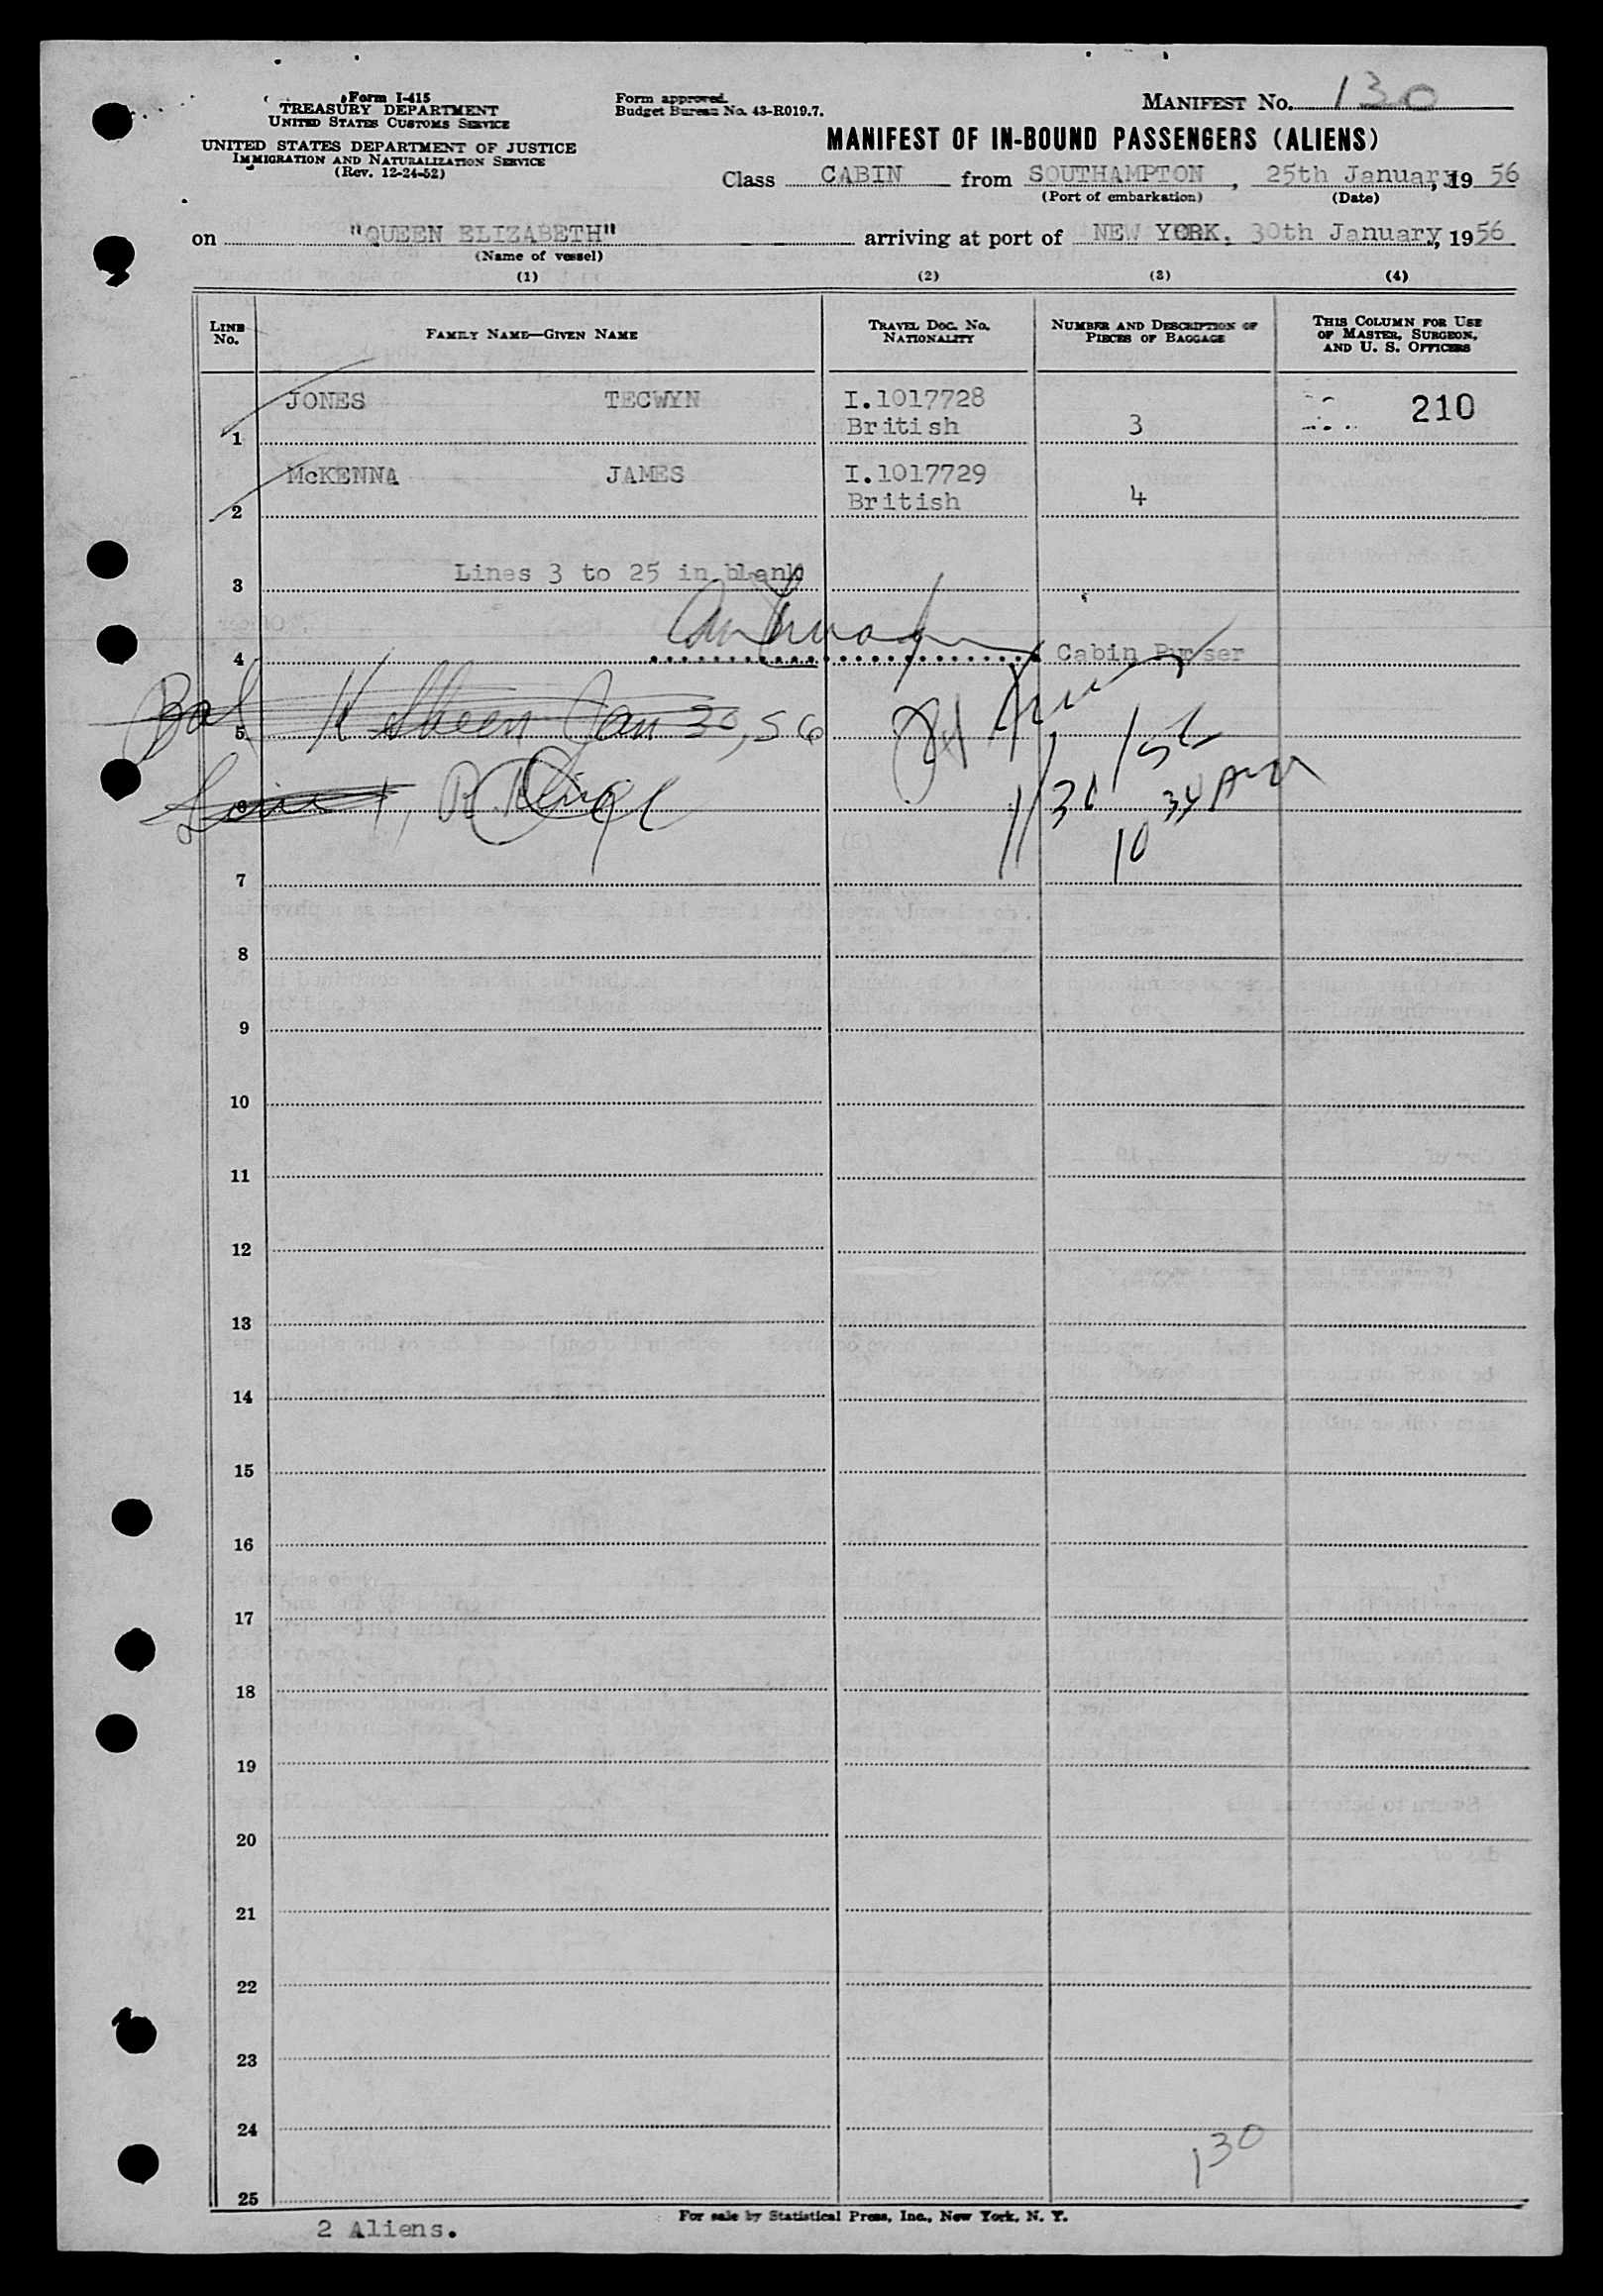 Form I-415
TREASURY DEPARTMENT
UNITED STATES CUSTOMS SERVICE
UNITED STATES DEPARTMENT OF JUSTICE
IMMIGRATION AND NATURALIZATION SERVICE
(Rev. 12-24-52)
Form approved.
Budget Bureau No. 43-R019.7.
MANIFEST No. 130
MANIFEST OF IN-BOUND PASSENGERS (ALIENS)
Class CABIN from SOUTHAMPTON, 25th January, 1956
(Port of embarkation) (Date)
on "QUEEN ELIZABETH" arriving at port of NEW YORK, 30th January, 1956
(Name of vessel)
(1) (2) (3) (4)
LINE No. FAMILY NAME—GIVEN NAME TRAVEL DOC. NO. NATIONALITY NUMBER AND DESCRIPTION OF PIECES OF BAGGAGE THIS COLUMN FOR USE OF MASTER, SURGEON, AND U. S. OFFICERS
JONES TECWYN I.1017728 210
1 British 3
McKENNA JAMES I.1017729
2 British 4
3 Lines 3 to 25 in blank
4 Cabin Purser
5 Jan 30, 56
6 1/30
10
7
8
9
10
11
12
13
14
15
16
17
18
19
20
21
22
23
24
130
25
For sale by Statistical Press, Inc., New York, N. Y.
2 Aliens.